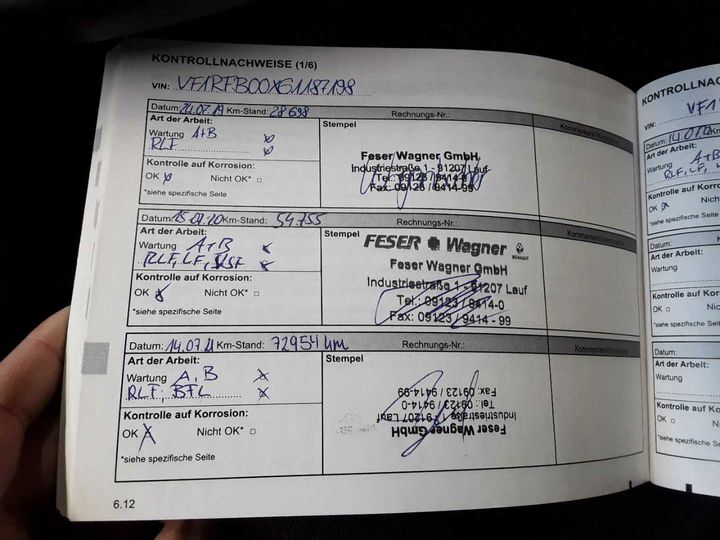 KONTROLLNACHWEISE (1/6)
VIN: VF1RFB00X61187198
Datum: 24.07.19 Km-Stand: 28 698 Rechnungs-Nr.:
Art der Arbeit:
Wartung A+B
RLF
Kontrolle auf Korrosion:
OK Nicht OK*
*siehe spezifische Seite
Stempel
Feser Wagner GmbH
Industriestraße 1 - 91207 Lauf
Tel.: 09123 / 9414-0
Fax: 09123 / 9414-99
Datum: Km-Stand: 54.755 Rechnungs-Nr.:
Art der Arbeit:
Wartung A+B
RLF, LF,
Kontrolle auf Korrosion:
OK Nicht OK*
*siehe spezifische Seite
Stempel
FESER Wagner
RENAULT
Feser Wagner GmbH
Industriestraße 1 - 91207 Lauf
Tel.: 09123 / 9414-0
Fax: 09123 / 9414 - 99
Datum: 14.07.21 Km-Stand: 72954 km Rechnungs-Nr.:
Art der Arbeit:
Wartung A, B
RLF, BFL
Kontrolle auf Korrosion:
OK Nicht OK*
*siehe spezifische Seite
Stempel
Feser Wagner GmbH
Industriestraße 1 - 91207 Lauf
Tel.: 09123 / 9414-0
Fax: 09123 / 9414-99
6.12
KONTROLLNAC
VIN: VF1
Datum:
Art der Arbeit:
Wartung A+B
RLF, LF,
Kontrolle auf Korro
OK Nicht
*siehe spezifische Seite
Datum:
Art der Arbeit:
Wartung
Kontrolle auf Korro
OK Nicht O
*siehe spezifische Seite
Datum:
Art der Arbeit:
Wartung
Kontrolle auf Korros
OK Nicht OK
*siehe spezifische Seite